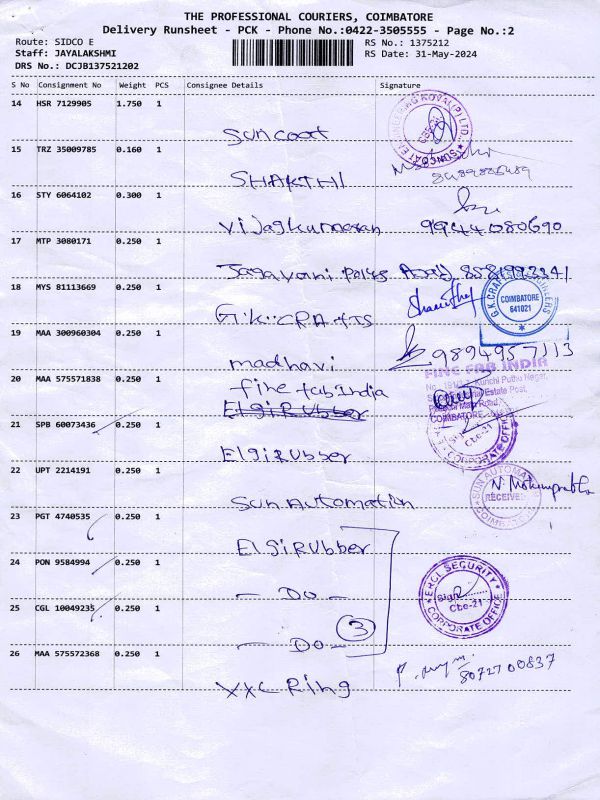 THE PROFESSIONAL COURIERS, COIMBATORE
Delivery Runsheet - PCK - Phone No.:0422-3505555 - Page No.:2
Route: SIDCO E
RS No.: 1375212
Staff: JAYALAKSHMI
RS Date: 31-May-2024
DRS No.: DCJB137521202
S No Consignment No Weight PCS Consignee Details Signature
14 HSR 7129905 1.750 1
Suncoat
15 TRZ 35009785 0.160 1
SHAKTHI
16 STY 6064102 0.300 1
Vijaykumaran 9944080690
17 MTP 3080171 0.250 1
18 MYS 81113669 0.250 1
G.K. CRAFTS
G.K.CRAFTS ENGINEERS
COIMBATORE
641021
19 MAA 300960304 0.250 1
madhavi 9894957113
20 MAA 575571838 0.250 1
fine fab India
ElgiRubber
FINE FAB INDIA
21 SPB 60073436 0.250 1
ElgiRubber
Cbe-21
CORPORATE OFFICE
22 UPT 2214191 0.250 1
Sun Automation
SUN AUTOMATION
RECEIVED
COIMBATORE
23 PGT 4740535 0.250 1
ElgiRubber
24 PON 9584994 0.250 1
- Do -
ERCL SECURITY
Sign
Cbe-21
CORPORATE OFFICE
25 CGL 10049235 0.250 1
- Do -
3
26 MAA 575572368 0.250 1
8072700837